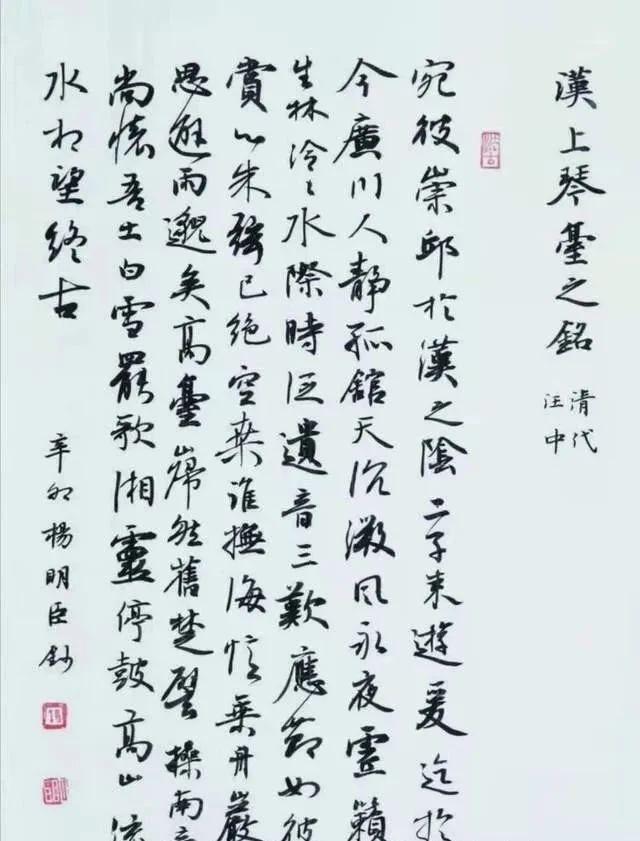 漢上琴臺之銘
清代
汪中
宛彼崇邱於漢之陰二子來遊爰迄於
今廣川人靜孤館天沉微風永夜靈籟
生林泠々水際時泛遺音三歎應節如彼
賞心朱弦已絕空桑誰撫海憶乘舟巖
思避雨邈矣高臺巋然舊楚譬操南音
尚懷吾土白雪罷歌湘靈停鼓高山流
水相望終古
辛卯楊明臣鈔